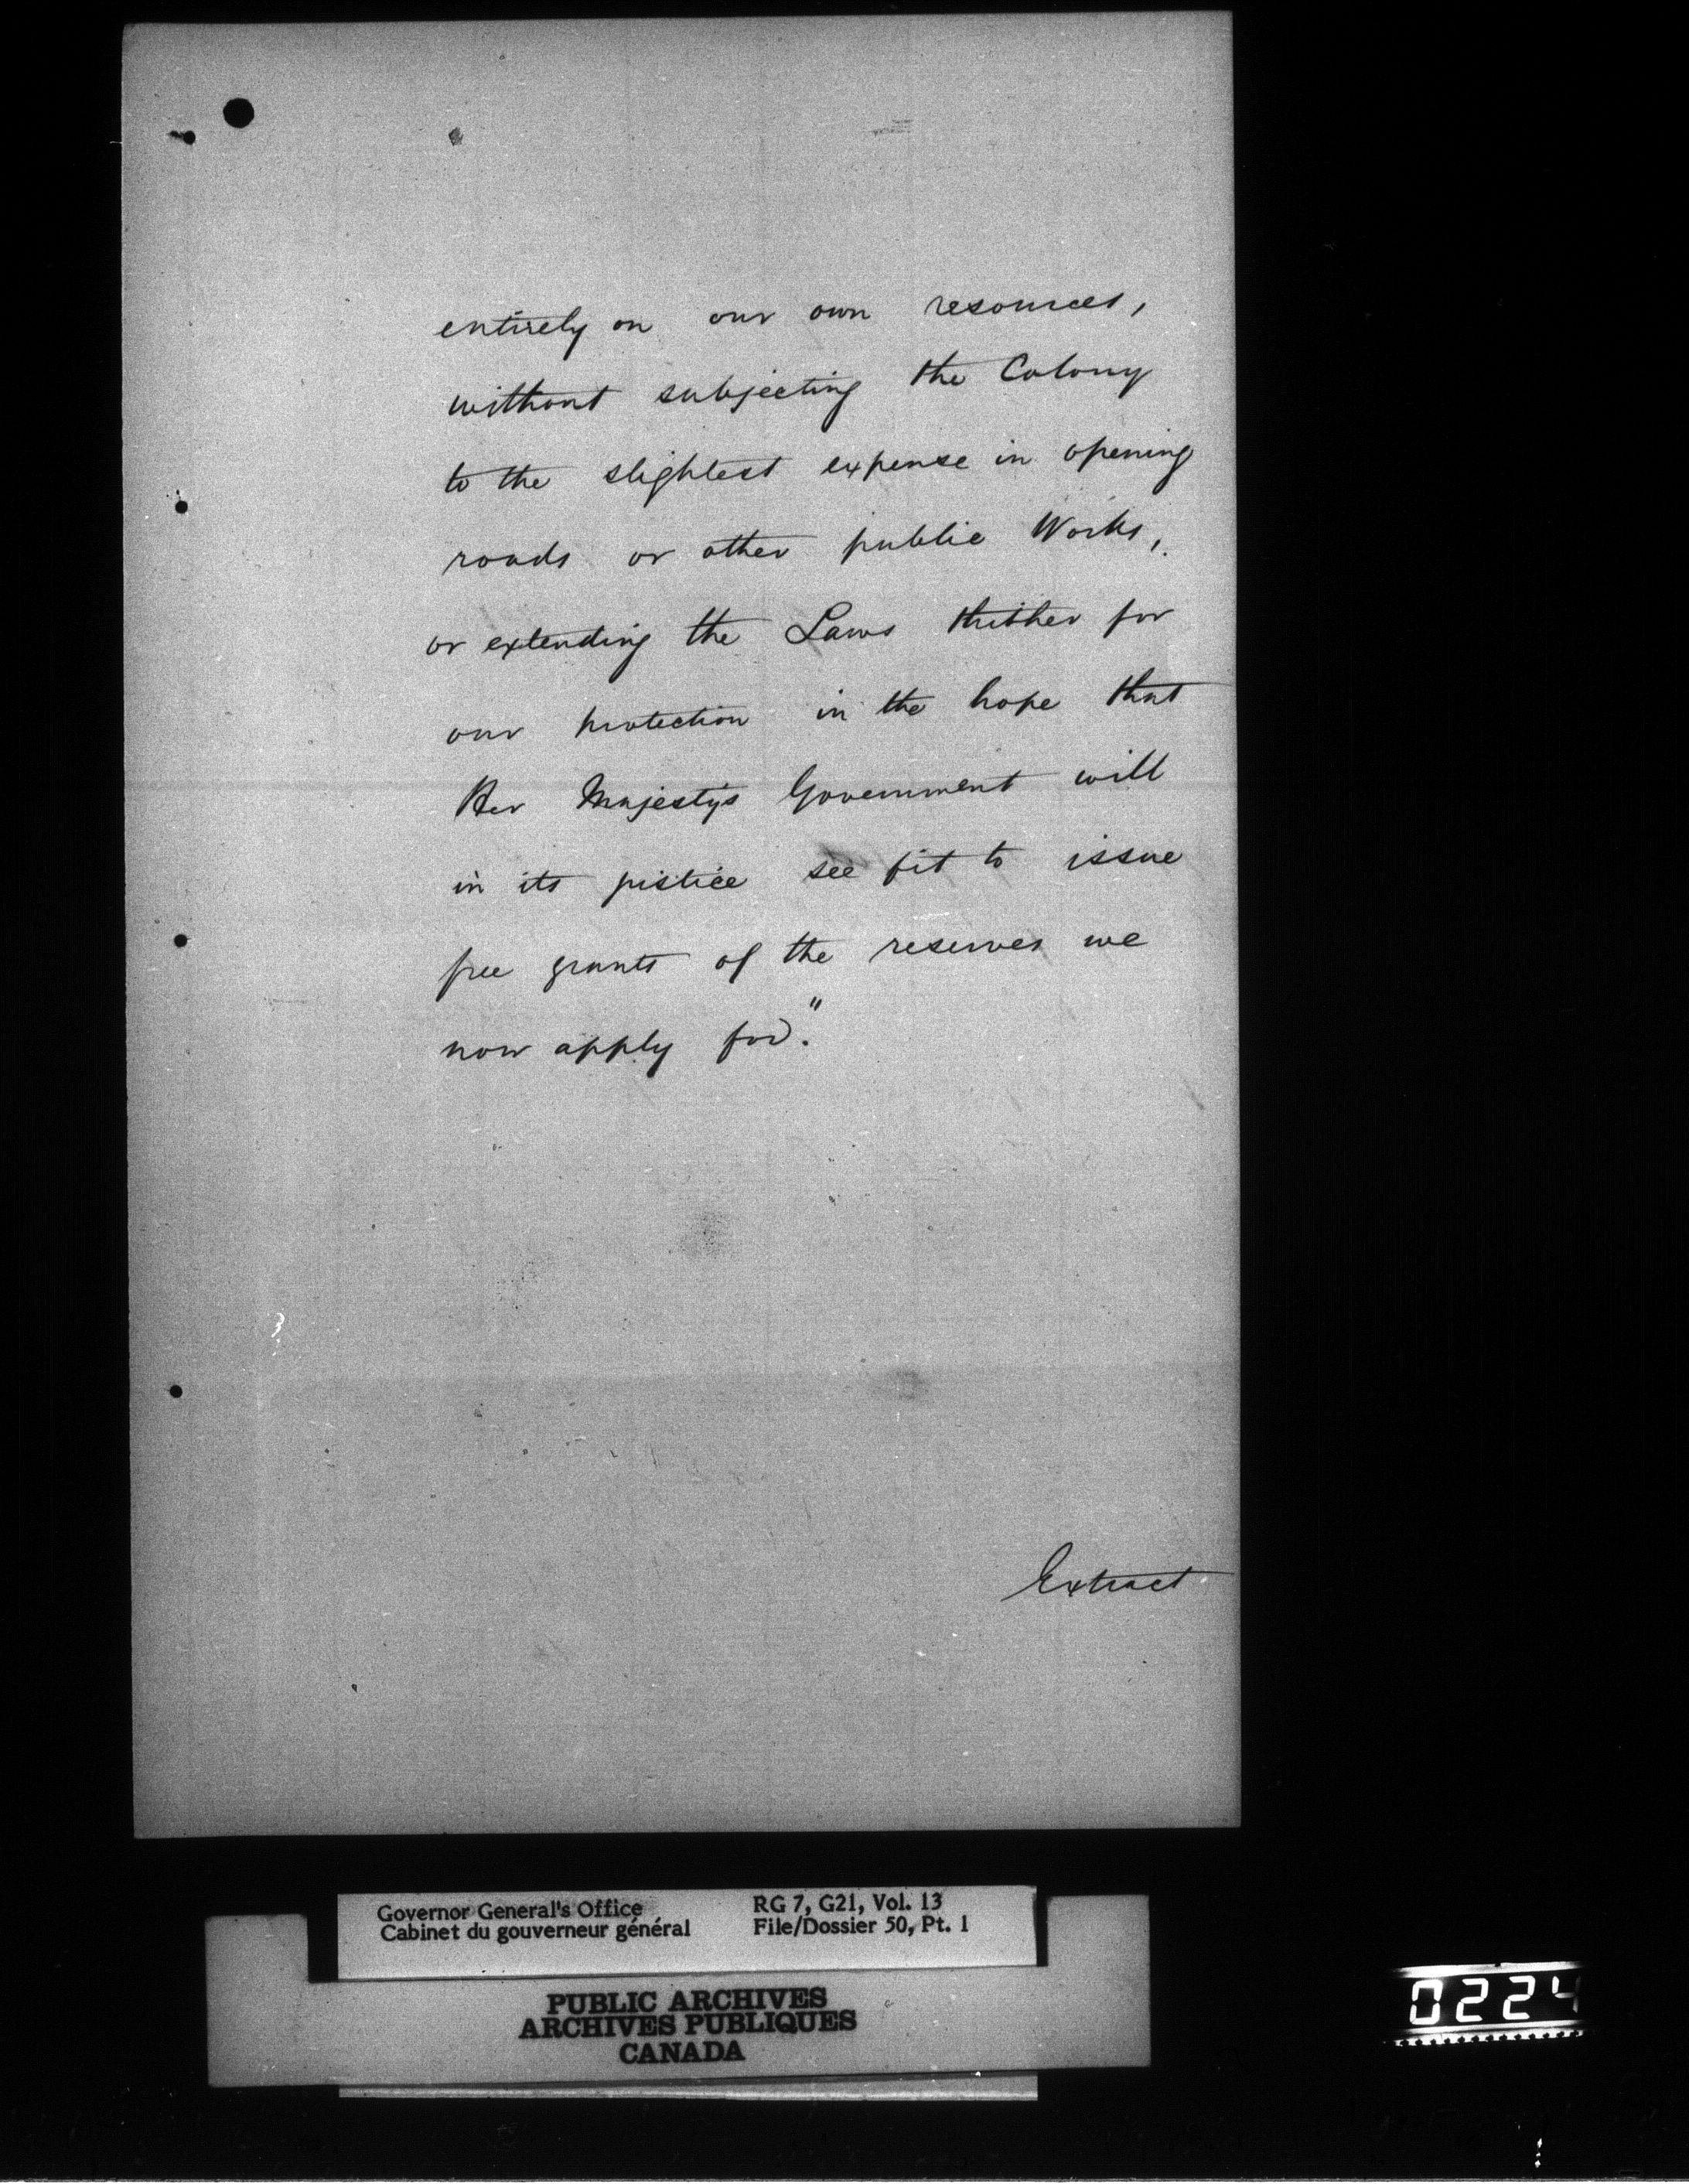 entirely on our own resources,
without subjecting the Colony
to the slightest expense in opening
roads or other public Works,
or extending the Laws thither for
our protection in the hope that
Her Majesty's Government will
in its justice see fit to issue
free grants of the reserves we
now apply for."
Extract
Governor General's Office
Cabinet du gouverneur général
RG 7, G21, Vol. 13
File/Dossier 50, Pt. 1
PUBLIC ARCHIVES
ARCHIVES PUBLIQUES
CANADA
0224